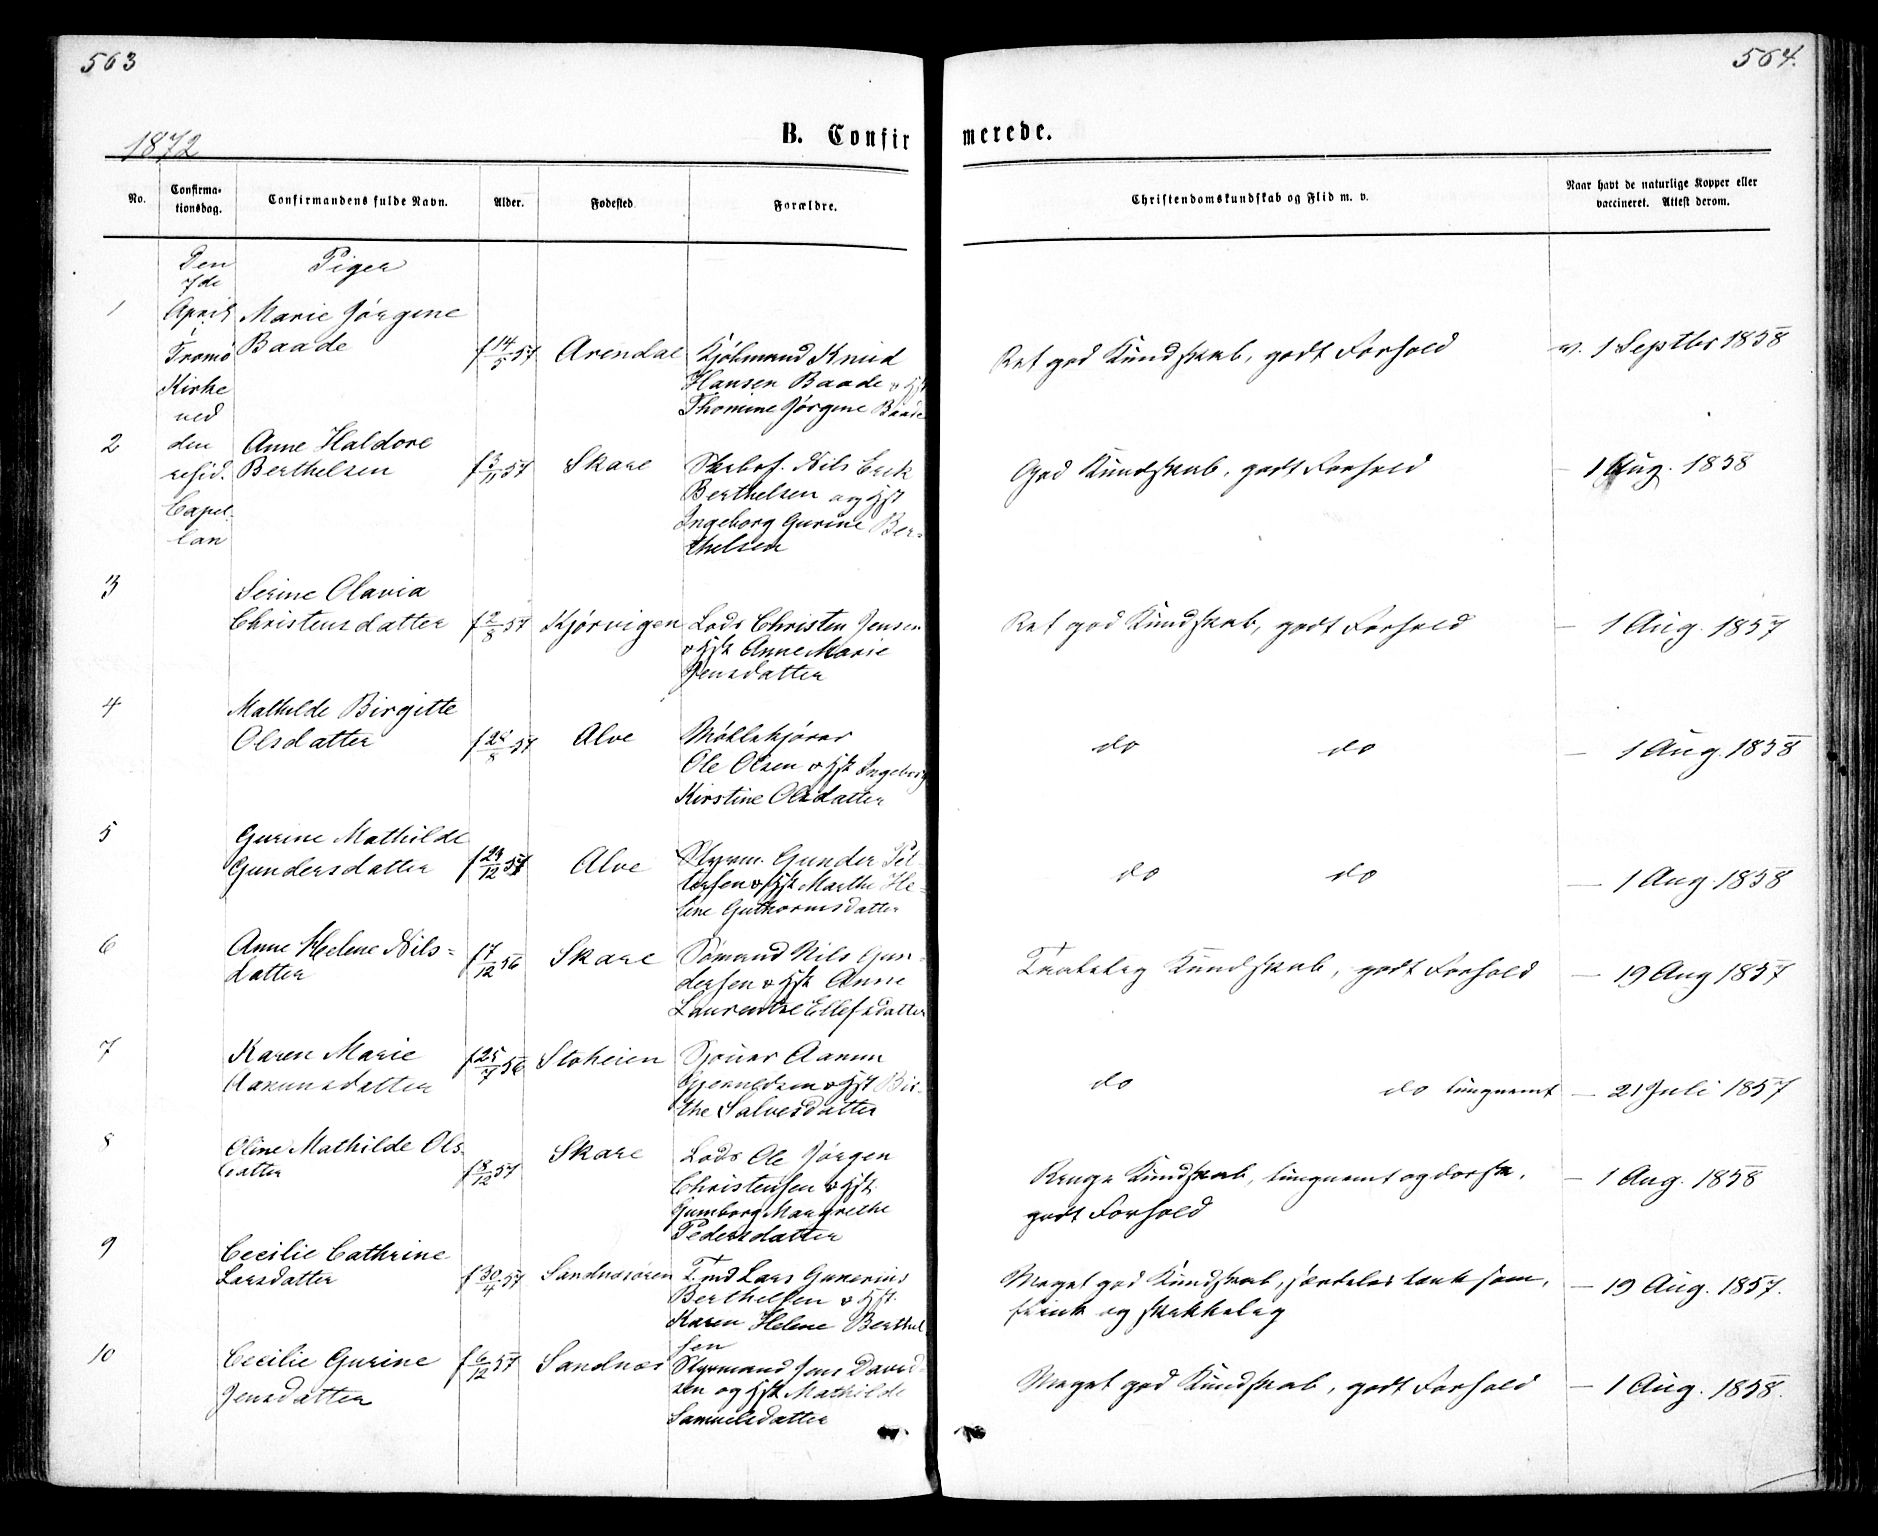 563
564.
1872
B. Confir
merede.
No.
Confirma-
tionsdag.
Confirmandens fulde Navn.
Alder.
Fødested
Forældre.
Christendomskundskab og Flid m. v.
Naar havt de naturlige Kopper eller
vaccineret. Attest derom.
Den
7de
April
i
Tromø
Kirke
ved
den
resid.
Capel-
lan
Piger
1
Marie Jørgine
Baade
f 14/5 57
Arendal
Kjøbmand Knud
Hansen Baade og Hst
Thomine Jørgine Baade
Ret god Kundskab, godt Forhold
v. 1 Septbr 1858
2
Anne Haldore
Berthelsen
f 3/11 57
Skare
Skibsf. Nils Erik
Berthelsen og Hst
Ingeborg Gurine Ber-
thelsen
God Kundskab, godt Forhold
– 1 Aug. 1858
3
Serine Olavia
Christensdatter
f 2/8 57
Kjørvigen
Lods Christen Jensen
og Hst Anne Marie
Jensdatter
Ret god Kundskab, godt Forhold
– 1 Aug. 1857
4
Mathilde Birgitte
Olsdatter
f 28/8 57
Alve
Møllekjører
Ole Olsen og Hst Ingeborg
Kirstine Olsdatter
do do
– 1 Aug. 1858
5
Gurine Mathilde
Gundersdatter
f 29/12 57
Alve
Styrm. Gunder Pet-
tersen og Hst Marthe He-
line Guthormsdatter
do do
– 1 Aug. 1858
6
Anne Helene Nils-
datter
f 7/12 56
Skare
Sømand Nils Gun-
dersen og Hst Anne
Laurentze Ellefsdatter
Taalelig Kundskab, godt Forhold
– 19 Aug 1857
7
Karen Marie
Aanunsdatter
f 25/7 56
Stoheien
Sjouer Aanun
Gjeruldsen og Hst Bir-
the Salvesdatter
do do tungnemt
– 21 Juli 1857
8
Oline Mathilde Ols-
datter
f 8/12 57
Skare
Lods Ole Jørgen
Christensen og Hst
Gumborg Margrethe
Pedersdatter
Ringe Kundskab, tungnemt og dorsk,
godt Forhold
– 1 Aug. 1858
9
Cecilie Cathrine
Larsdatter
f 30/4 57
Sandnæsøren
Lars Gunerius
Berthelsen og Hst.
Karen Helene Berthel-
sen
Meget god Kundskab, særdeles tænksom,
flink og skikkelig
– 19 Aug. 1857.
10
Cecilie Gurine
Jensdatter
f 6/12 57
Sandnæs
Styrmand Jens David-
sen og Hst Mathilde
Samuelsdatter
Meget god Kundskab, godt Forhold
– 1 Aug. 1858.